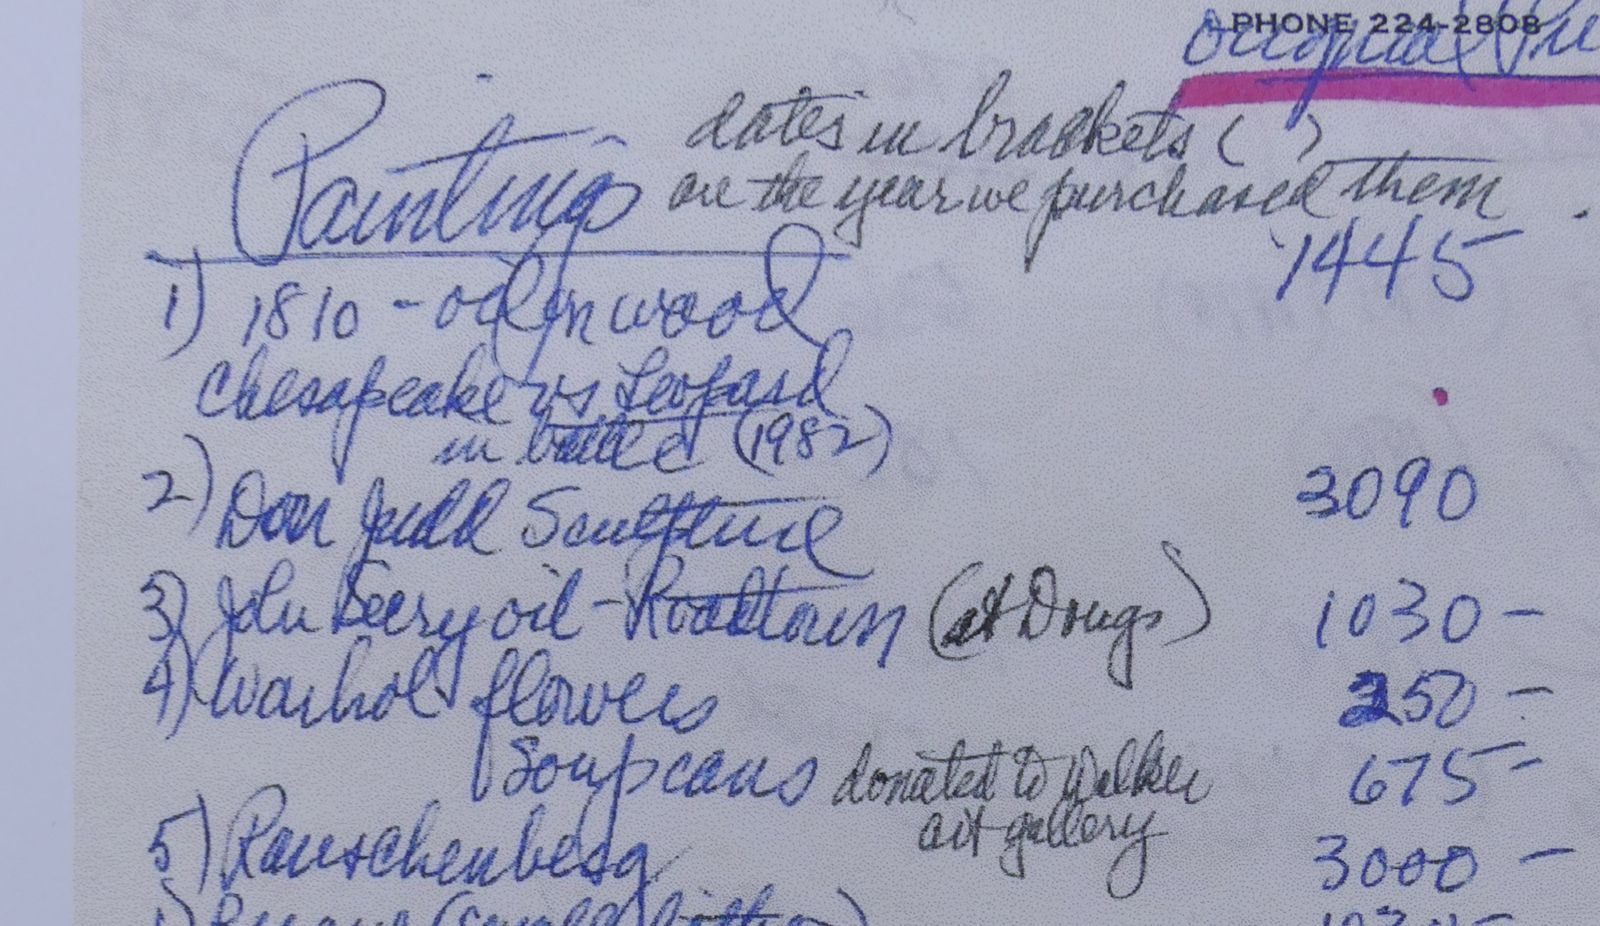 PHONE 224-2808
Original
Paintings
dates in brackets ( )
are the year we purchased them
1) 1810 - oil on wood 1445
Chesapeake vs Leopard
in battle (1982)
2) Don Judd Sculpture 3090
3) John Beery oil - Roadtown (at Dougs) 1030 -
4) Warhol flowers 250 -
Soup cans donated to Walker 675 -
art gallery
5) Rauschenberg 3000 -